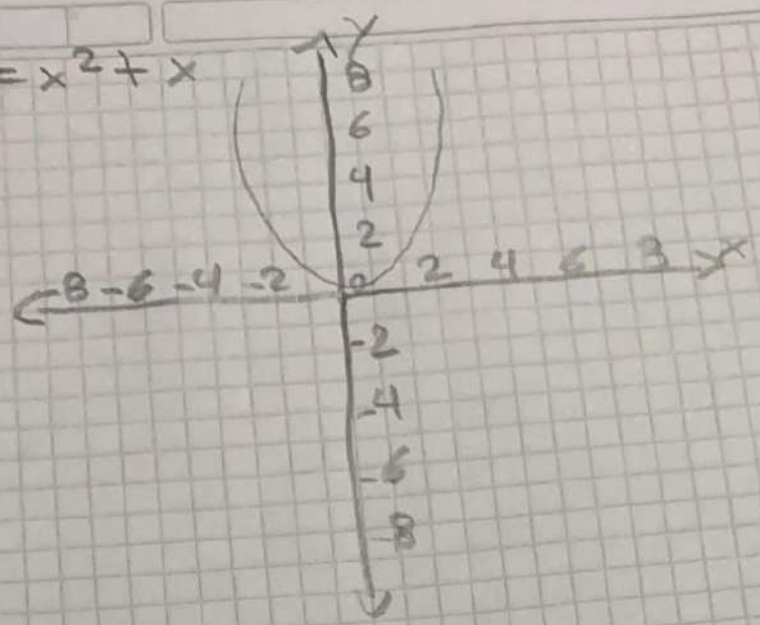 Y
= x² + x
8
6
4
2
-8 -6 -4 -2 0 2 4 6 8 x
-2
-4
-6
-8